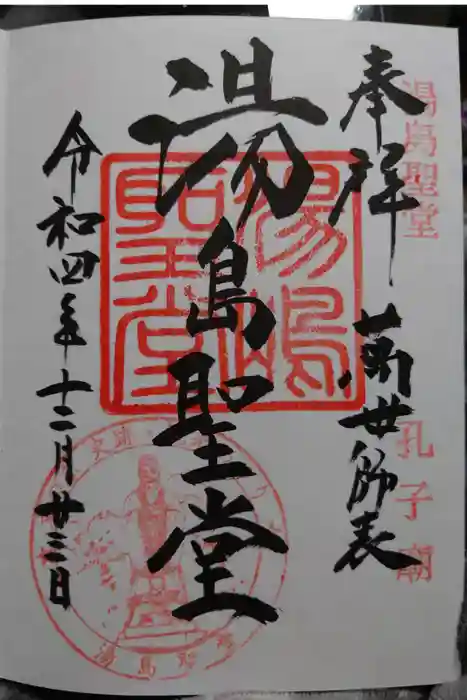 奉拝 萬世師表
湯島聖堂
孔子廟
湯島聖堂
湯嶋聖堂
令和四年十二月廿三日
湯島聖堂